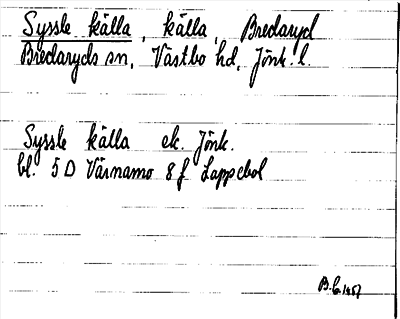 Syssle källa, källa, Bredaryd
Bredaryds sn, Västbo hd, Jönk. l.
Syssle källa ek. Jönk.
bl. 5 D Värnamo 8 f Lappebol